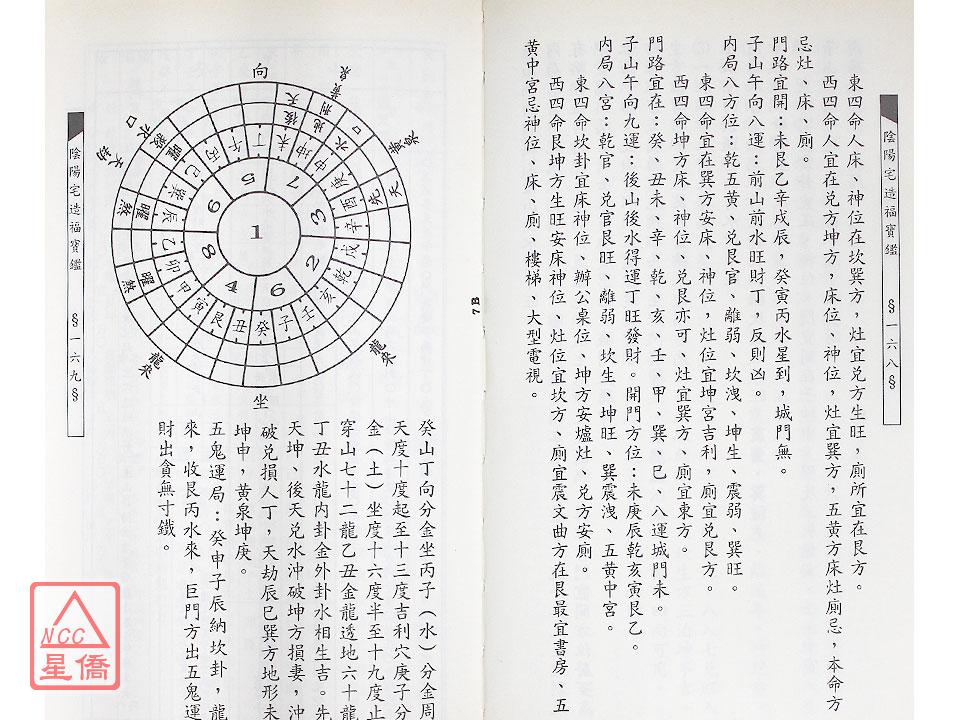 陰陽宅造福寶鑑
§一六八§
東四命人床、神位在坎巽方，灶宜兌方生旺，廁所宜在艮方。
西四命人宜在兌方坤方，床位、神位，灶宜巽方，五黃方床灶廁忌，本命方
忌灶、床、廁。
門路宜開：未艮乙辛戌辰，癸寅丙水星到，城門無。
子山午向八運：前山前水旺財丁，反則凶。
內局八方位：乾五黃、兌艮官、離弱、坎洩、坤生、震弱、巽旺。
東四命宜在巽方安床、神位，灶位宜坤宮吉利，廁宜兌艮方。
西四命坤方床、神位、兌艮亦可、灶宜巽方、廁宜東方。
門路宜在：癸、丑未、辛、乾、亥、壬、甲、巽、巳、八運城門未。
子山午向九運：後山後水得運丁旺發財。開門方位：未庚辰乾亥寅艮乙。
內局八宮：乾官、兌官艮旺、離弱、坎生、坤旺、巽震洩、五黃中宮。
東四命坎卦宜床神位、辦公桌位、坤方安爐灶、兌方安廁。
西四命艮坤方生旺安床神位、灶位宜坎方、廁宜震文曲方在艮最宜書房、五
黃中宮忌神位、床、廁、樓梯、大型電視。
7B
陰陽宅造福寶鑑
§一六九§
向
黃泉
黃泉
天劫
救口
曜殺
曜煞
曜煞
龍來
龍來
坐
天後
地利
水口
先天
丁未坤申庚酉辛戌乾亥壬子癸丑艮寅甲卯乙辰巽巳丙午
1
5
7
3
2
6
4
8
6
癸山丁向分金坐丙子（水）分金周
天度十度起至十三度吉利穴庚子分
金（土）坐度十六度半至十九度止
穿山七十二龍乙丑金龍透地六十龍
丁丑水龍內卦金外卦水相生吉。先
天坤、後天兌水沖破坤方損妻，沖
破兌損人丁，天劫辰巳巽方地形未
坤申，黃泉坤庚。
五鬼運局：癸申子辰納坎卦，龍
來，收艮丙水來，巨門方出五鬼運
財出貪無寸鐵。
NCC
星僑